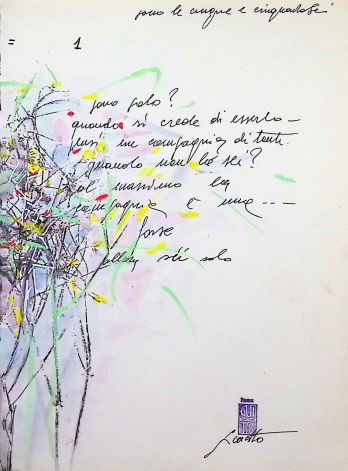 sono le cinque e cinquantasei
= 1
sono solo?
quando si crede di esserlo —
sei in compagnia di tanti.
quando non lo sei?
al massimo la
compagnia è una ---
forse
allora sei solo
Roma